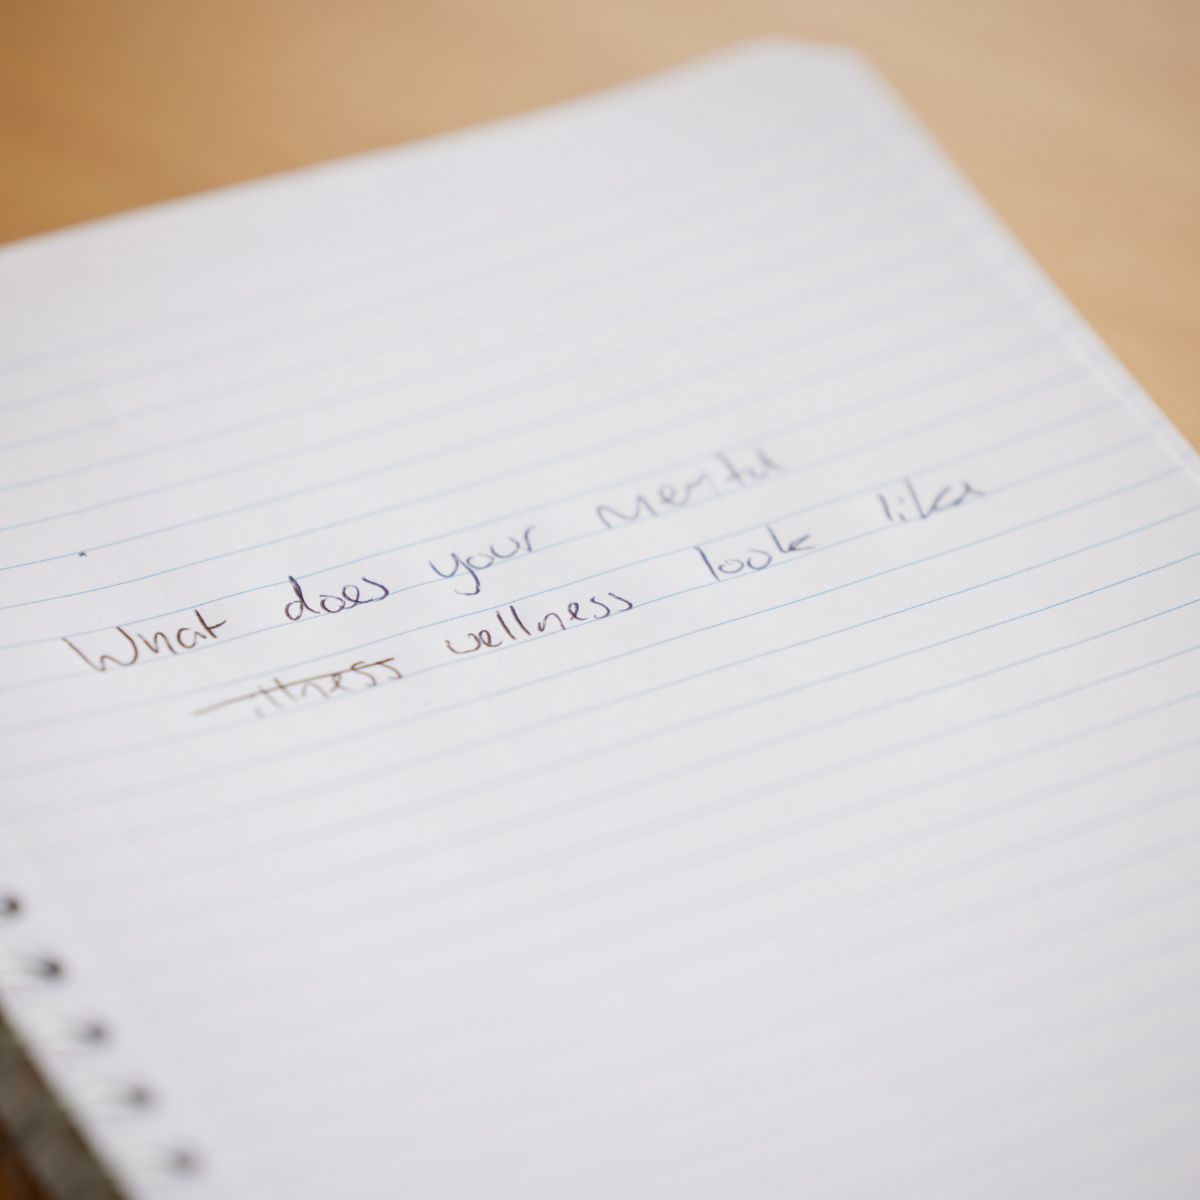 What does your mental
illness wellness look like